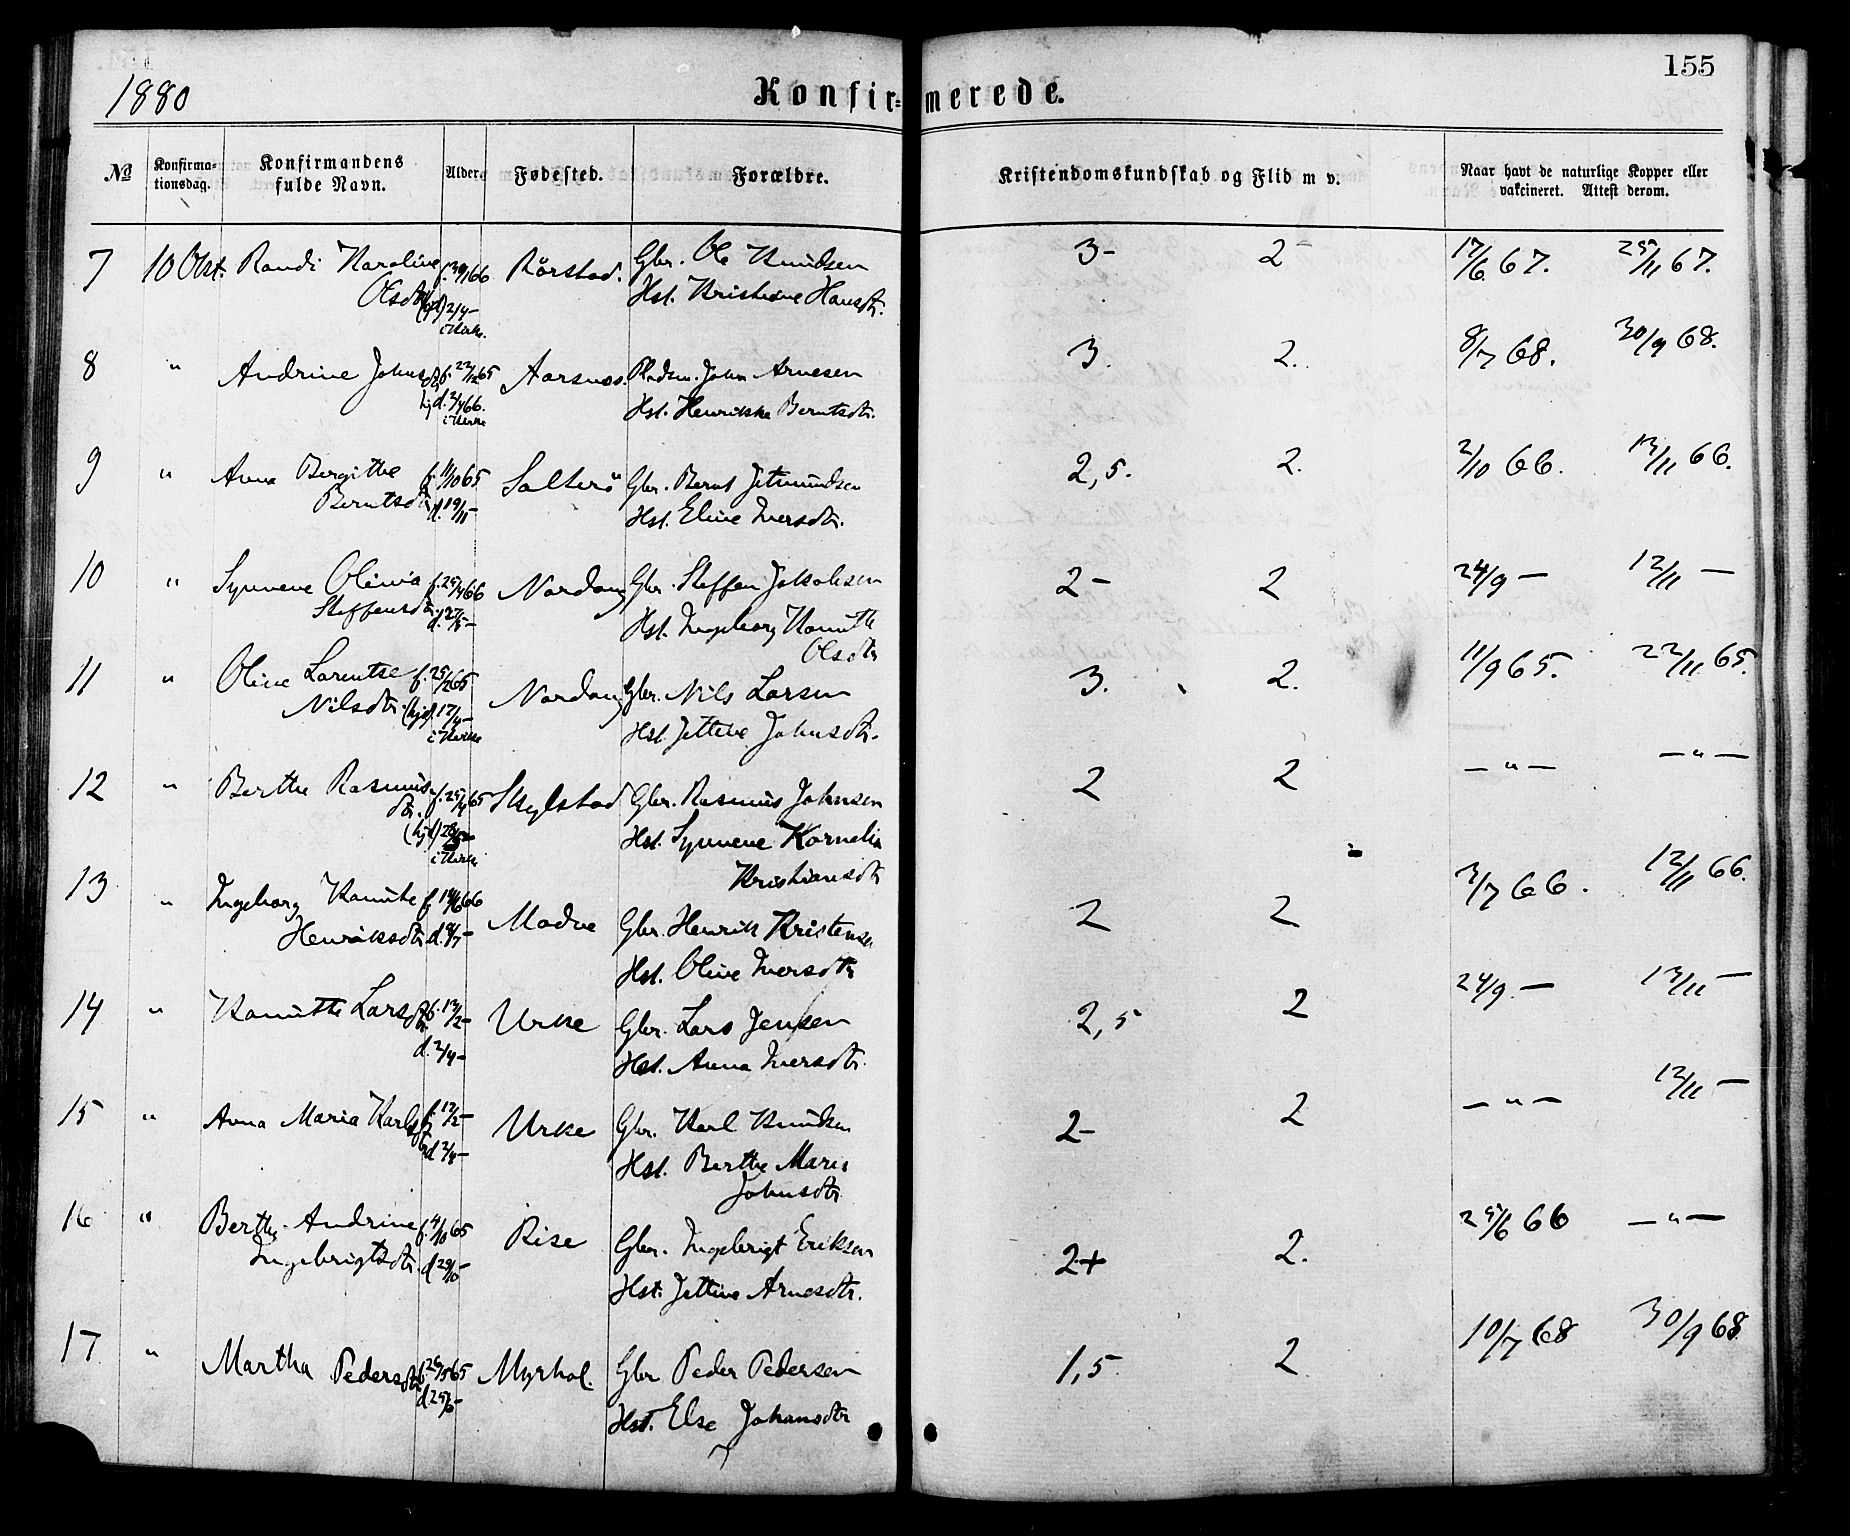 155
1880
Konfirmerede.
№ Konfirmationsdag. Konfirmandens fulde Navn. Alder. Fødested. Forældre. Kristendomskundskab og Flid m v. Naar havt de naturlige Kopper eller vakcineret. Attest derom.
7 10 Okt. Randi Karoline f. 30/1 66 Rörstad. Gbr. Ole Knudsen 3- 2- 17/6 67. 25/11 67.
Olsdtr (hjd) 2/4 - Hst. Kristiane Hansdtr.
i Kirke.
8 " Andrine Johnsdtr f. 22/12 65 Aarsnes. Pladsm. John Arnesen 3. 2. 8/7 68. 30/9 68.
hjd. 2/4 66. Hst. Henrikke Berntsdtr.
i Kirke
9 " Anna Bergithe f. 11/10 65 Solterö Gbr. Bernt Jetmundsen 2,5. 2. 2/10 66. 13/11 66.
Berntsdtr d. 19/11 - Hst. Eline Iversdtr.
10 " Synneve Olivia f. 25/4 66 Nordang Gbr. Steffen Jakobsen 2- 2 24/9 - 12/11 -
Steffensdtr d. 27/5 - Hst. Ingeborg Knuutte
Olsdtr
11 " Oline Larentse f. 25/2 65 Nordang Gbr. Nils Larsen 3. 2. 11/9 65. 22/11 65.
Nilsdtr. (hjd) 17/4 - Hst. Jettine Johnsdtr.
i Kirke
12 " Berthe Rasmusdtr. f. 25/4 65 Skylstad Gbr. Rasmus Johnsen 2 2 - " - - " -
(hjd) 28/5 - Hst. Synneve Kornelia
i Kirke Kristiansdtr
13 " Ingeborg Knuute f. 14/6 66 Modve Gbr. Henrik Kristensen 2 2 3/7 66. 12/11 66.
Henriksdtr d. 8/7 - Hst. Oline Iversdtr
14 " Knuutte Larsdtr f. 13/2 - Urke Gbr. Lars Jensen 2,5 2 24/9. - 13/11 -
d. 2/4 - Hst. Anna Iversdtr.
15 " Anna Maria Karlsdtr f. 12/2 - Urke Gbr. Karl Knudsen 2- 2 - " - 12/11 -
d 2/4 - Hst. Berthe Marie
Johnsdtr
16 " Berthe Andrine f. 4/10 65 Rise Gbr. Ingebrigt Eriksen 2+ 2. 25/6 66 - " -
Ingebrigtsdtr. d 29/10 - Hst. Jettine Arnesdtr.
17 " Martha Pedersdtr f. 26/5 65 Myrhol. Gbr Peder Pedersen 1,5. 2 10/7 68 30/9 68.
d. 25/6 - Hst. Else Johansdtr